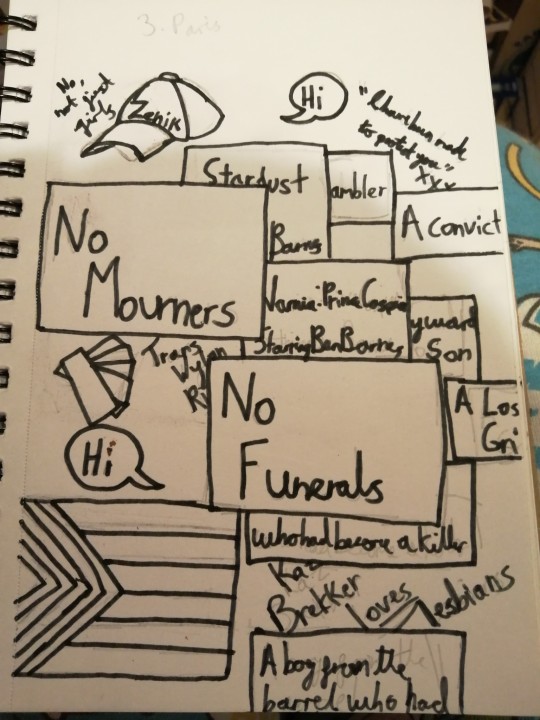 3. Paris
No,
not just
girls
Zenik
Hi
to protect you"
xxx
Stardust
ambler
Barnes
A convict
No
Mourners
Narnia: Prince Caspian
Starring Ben Barnes
yward
Son
Trans
Wylan
No
Funerals
A Los
Gri
Hi
who had become a killer
Kaz
Brekker Loves Lesbians
A boy from the
barrel who had